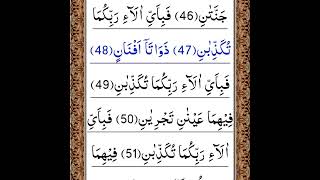 جَنَّتٰنِ(46) فَبِاَيِّ اٰلَآءِ رَبِّكُمَا
تُكَذِّبٰنِ(47) ذَوَاتَاۤ اَفْنَانٍ(48)
فَبِاَيِّ اٰلَآءِ رَبِّكُمَا تُكَذِّبٰنِ(49)
فِيْهِمَا عَيْنٰنِ تَجْرِيٰنِ(50) فَبِاَيِّ
اٰلَآءِ رَبِّكُمَا تُكَذِّبٰنِ(51) فِيْهِمَا